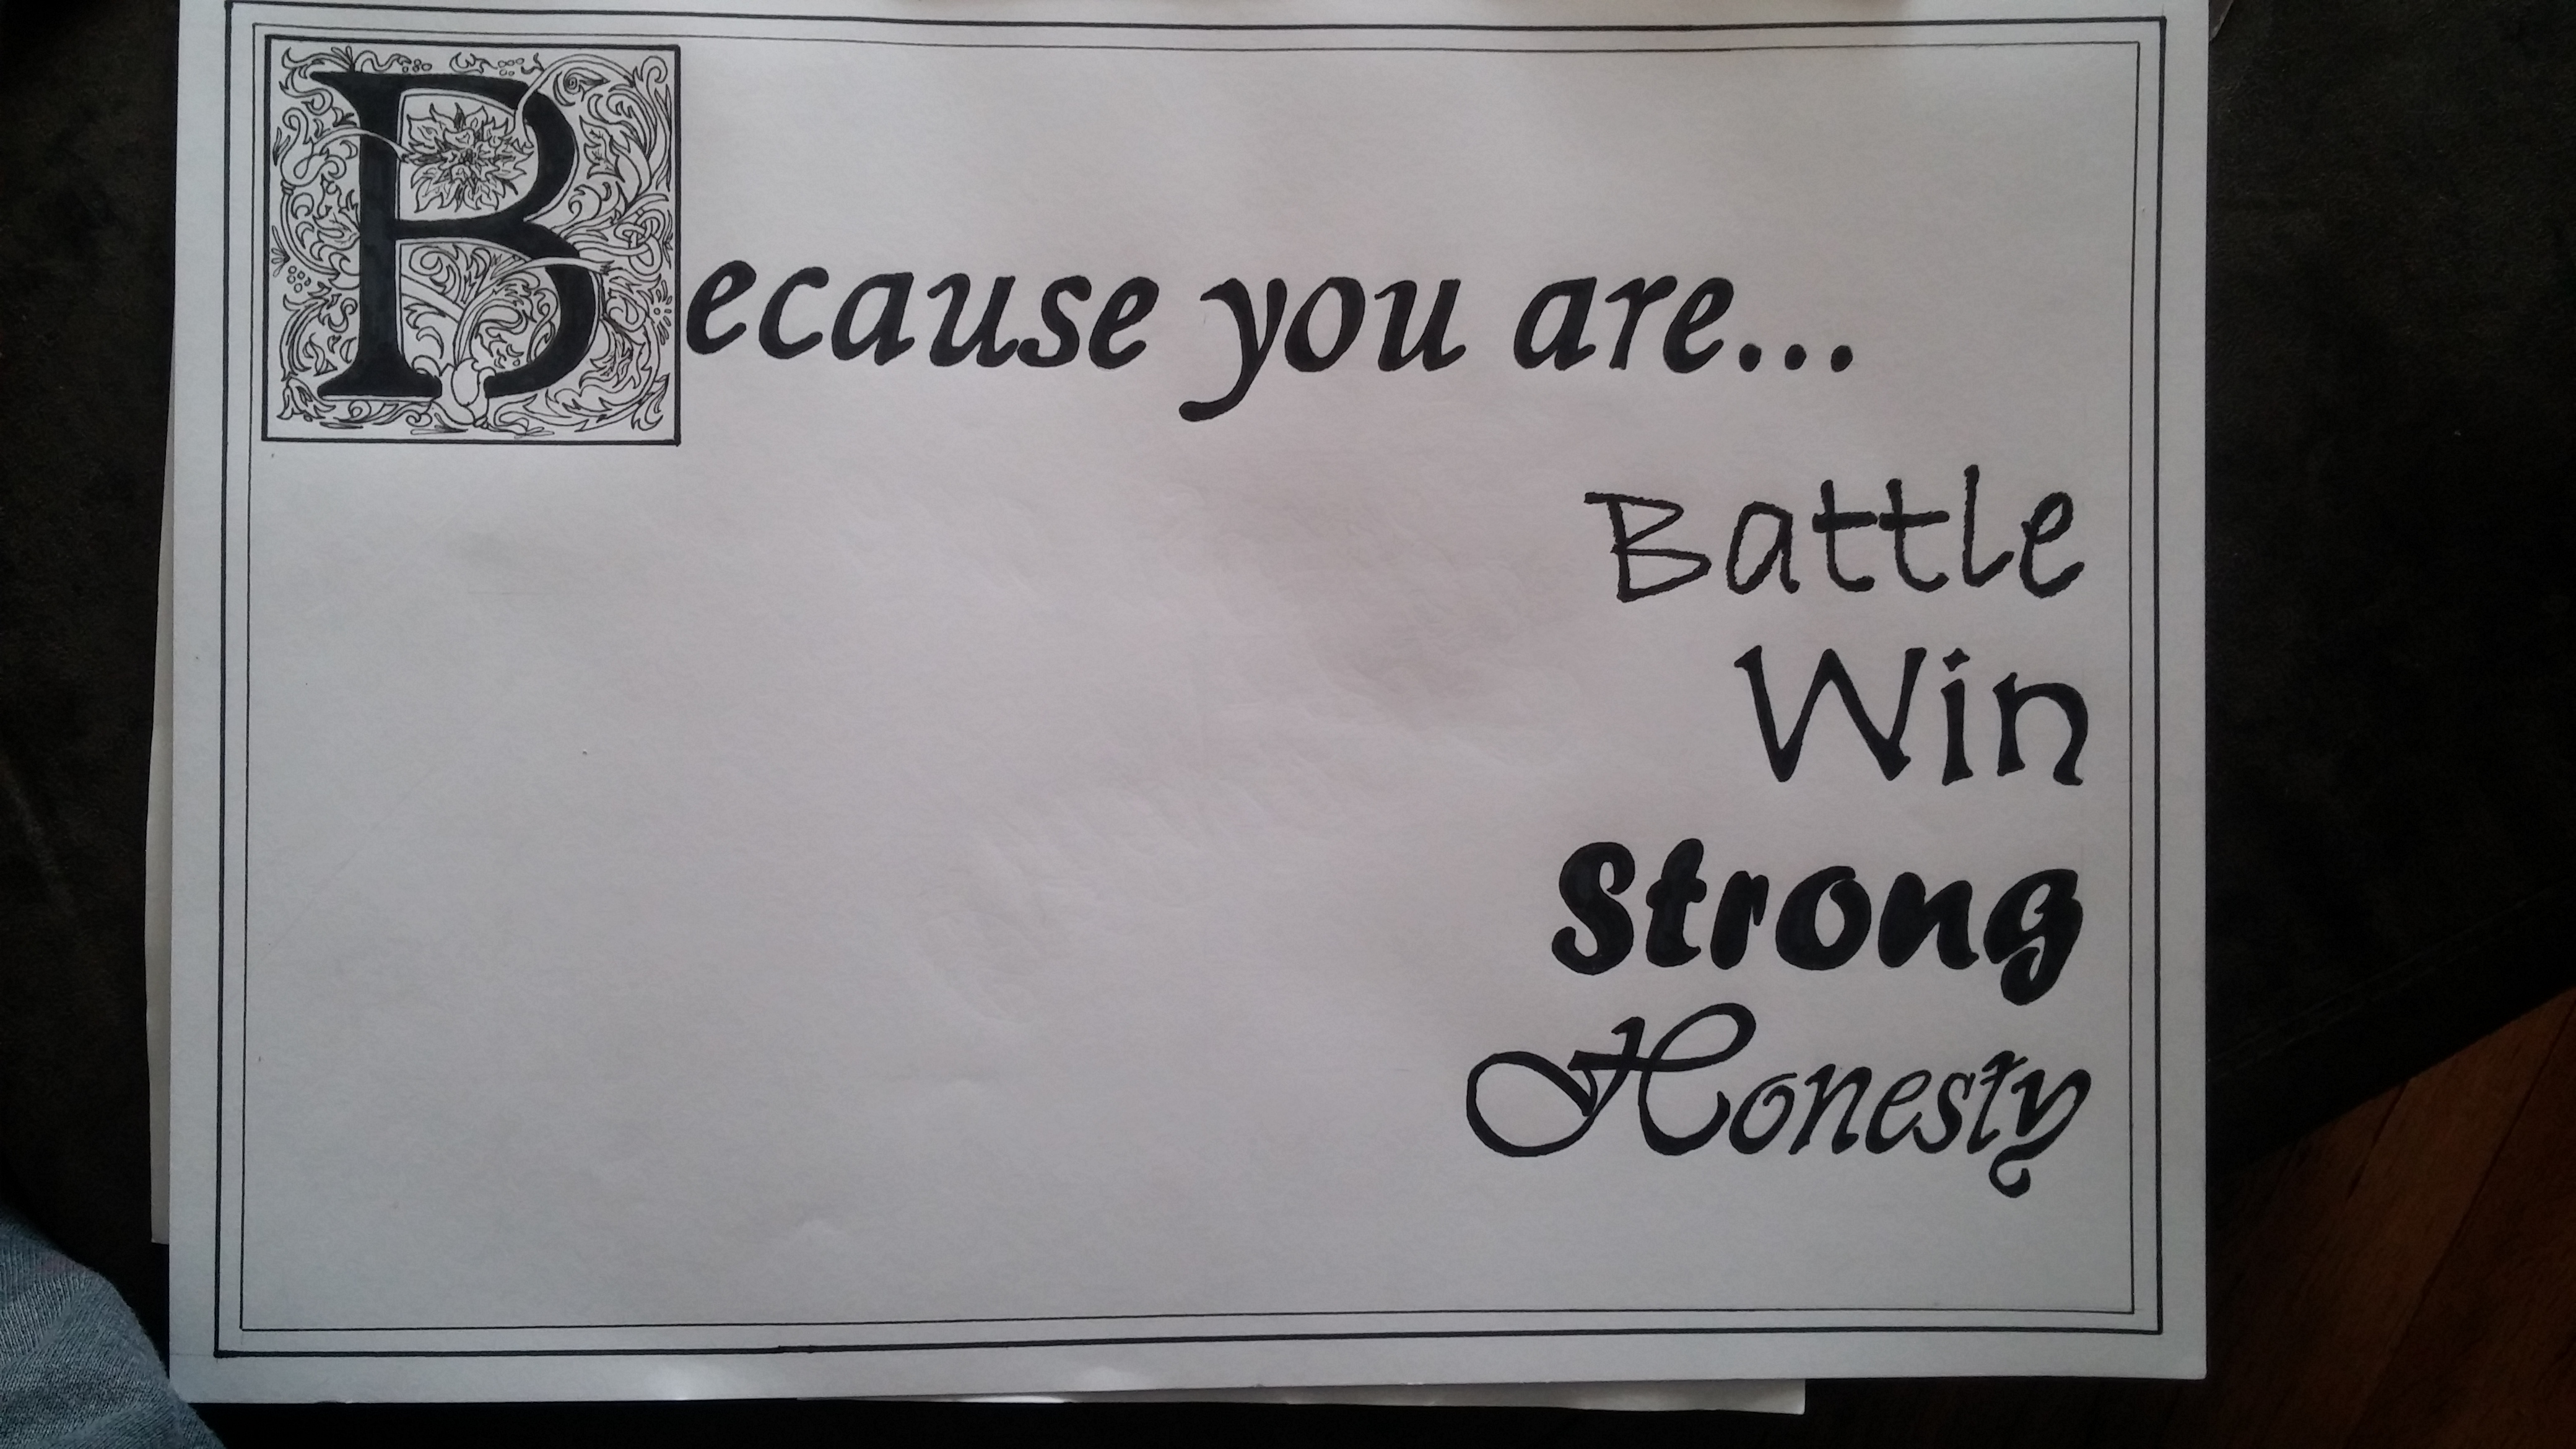 Because you are...
Battle
Win
Strong
Honesty